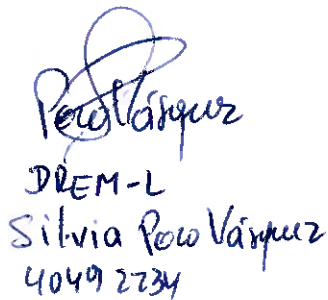 Poco Vásquez
DREM-L
Silvia Poco Vásquez
40492234